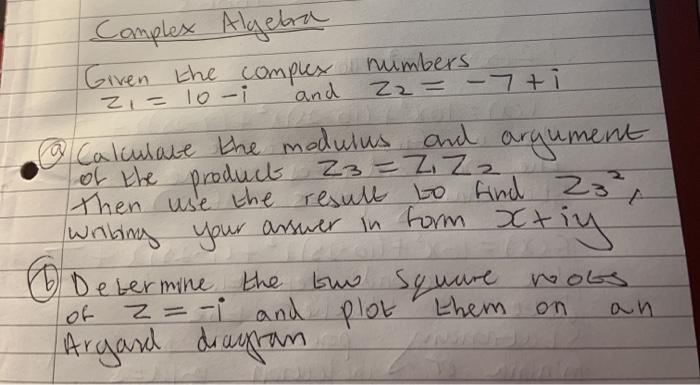 Complex Algebra
Given the complex numbers
z₁ = 10 - i and z₂ = -7 + i
(a) Calculate the modulus and argument
of the product z₃ = z₁ z₂
Then use the result to find z₃²,
writing your answer in form x + iy
(b) Determine the two square roots
of z = -i and plot them on an
Argand diagram